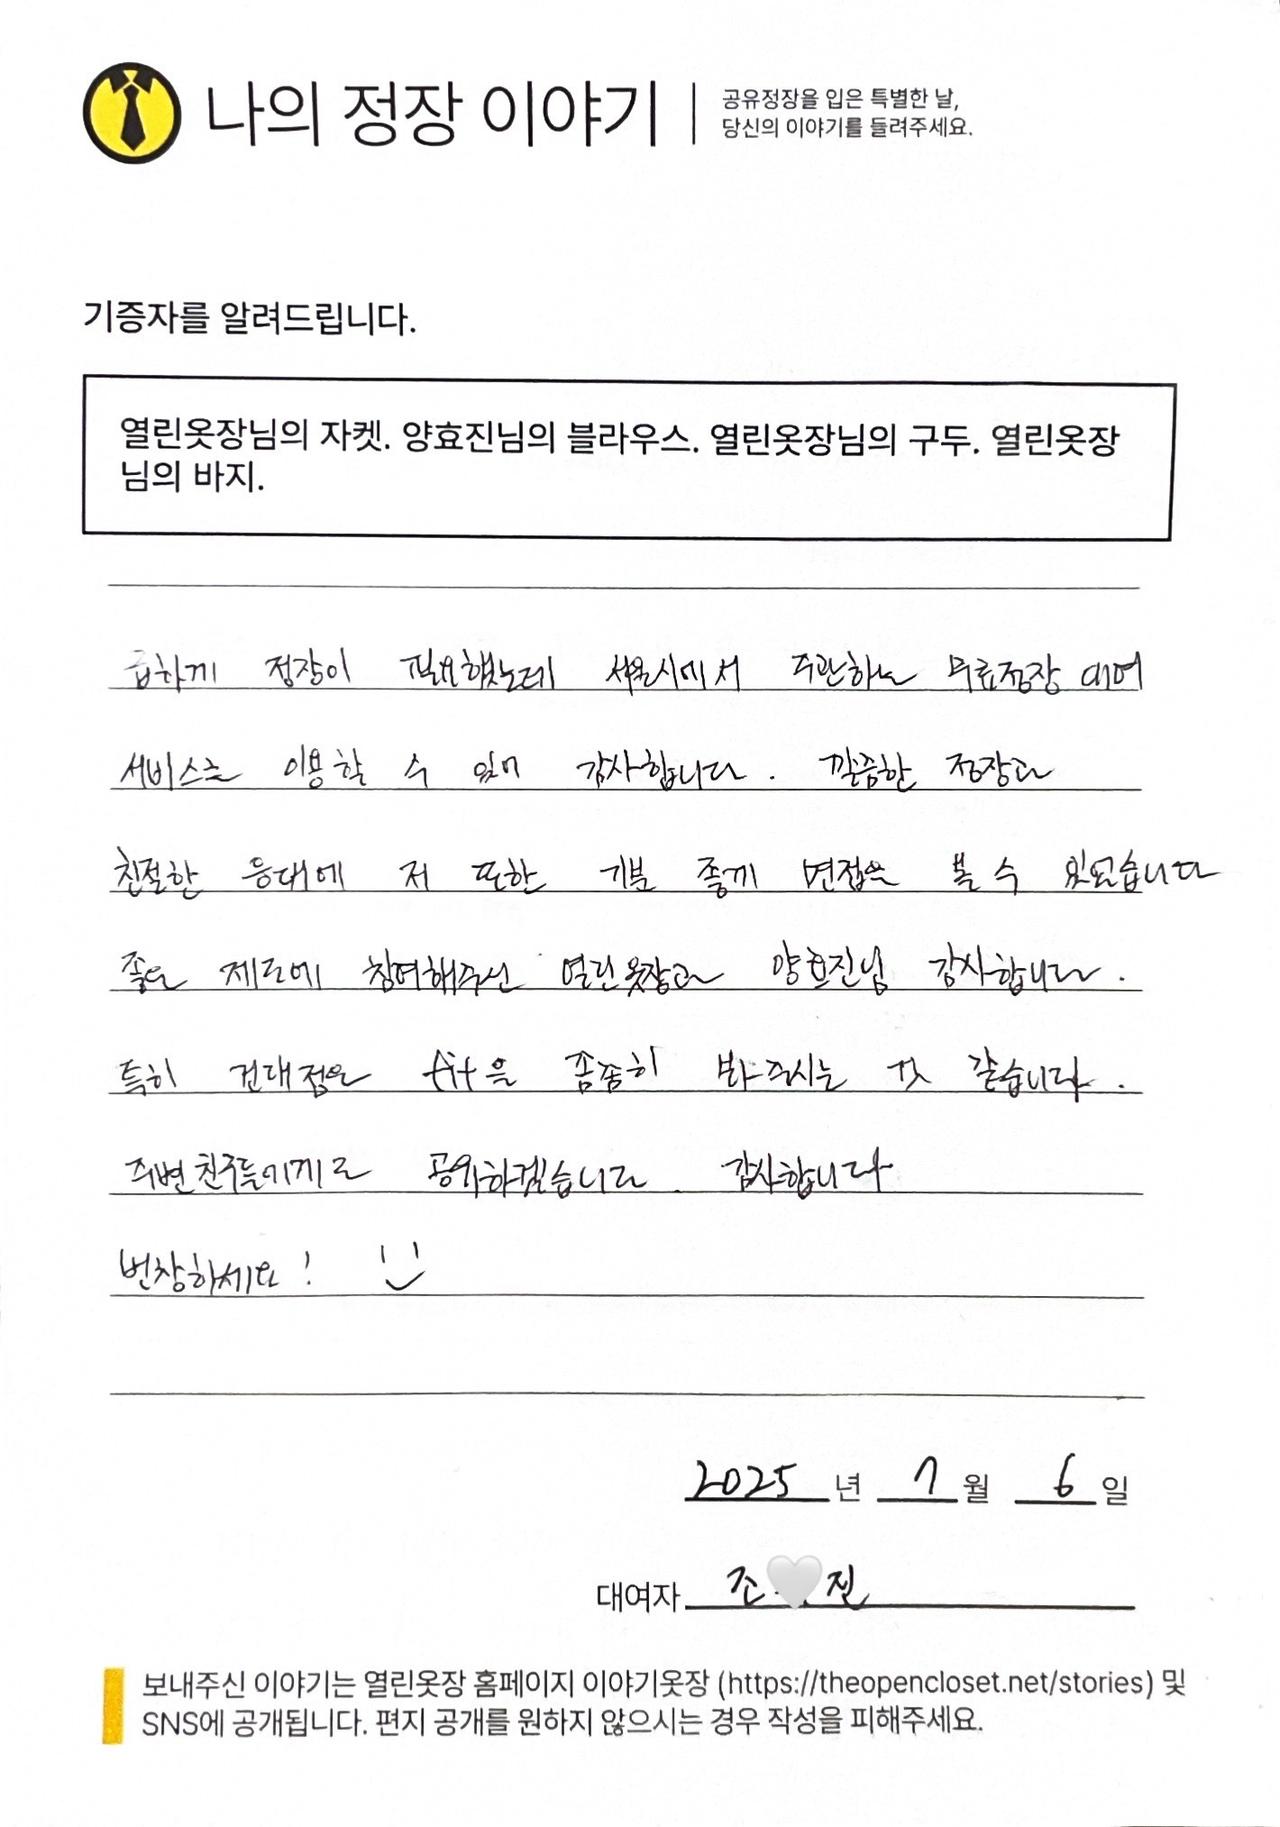 나의 정장 이야기
공유정장을 입은 특별한 날,
당신의 이야기를 들려주세요.
기증자를 알려드립니다.
열린옷장님의 자켓. 양효진님의 블라우스. 열린옷장님의 구두. 열린옷장
님의 바지.
급하게 정장이 필요했는데 서울시에서 주관하는 무료정장 대여
서비스를 이용할 수 있어 감사합니다. 깔끔한 정장과
친절한 응대에 저 또한 기분 좋게 면접을 볼 수 있었습니다
좋은 제도에 참여해주신 열린옷장과 양효진님 감사합니다.
특히 건대점은 fit을 꼼꼼히 봐주시는 것 같습니다.
주변친구들에게도 공유하겠습니다. 감사합니다
번창하세요!
2025 년 7 월 6 일
대여자 조 진
보내주신 이야기는 열린옷장 홈페이지 이야기옷장 (https://theopencloset.net/stories) 및
SNS에 공개됩니다. 편지 공개를 원하지 않으시는 경우 작성을 피해주세요.